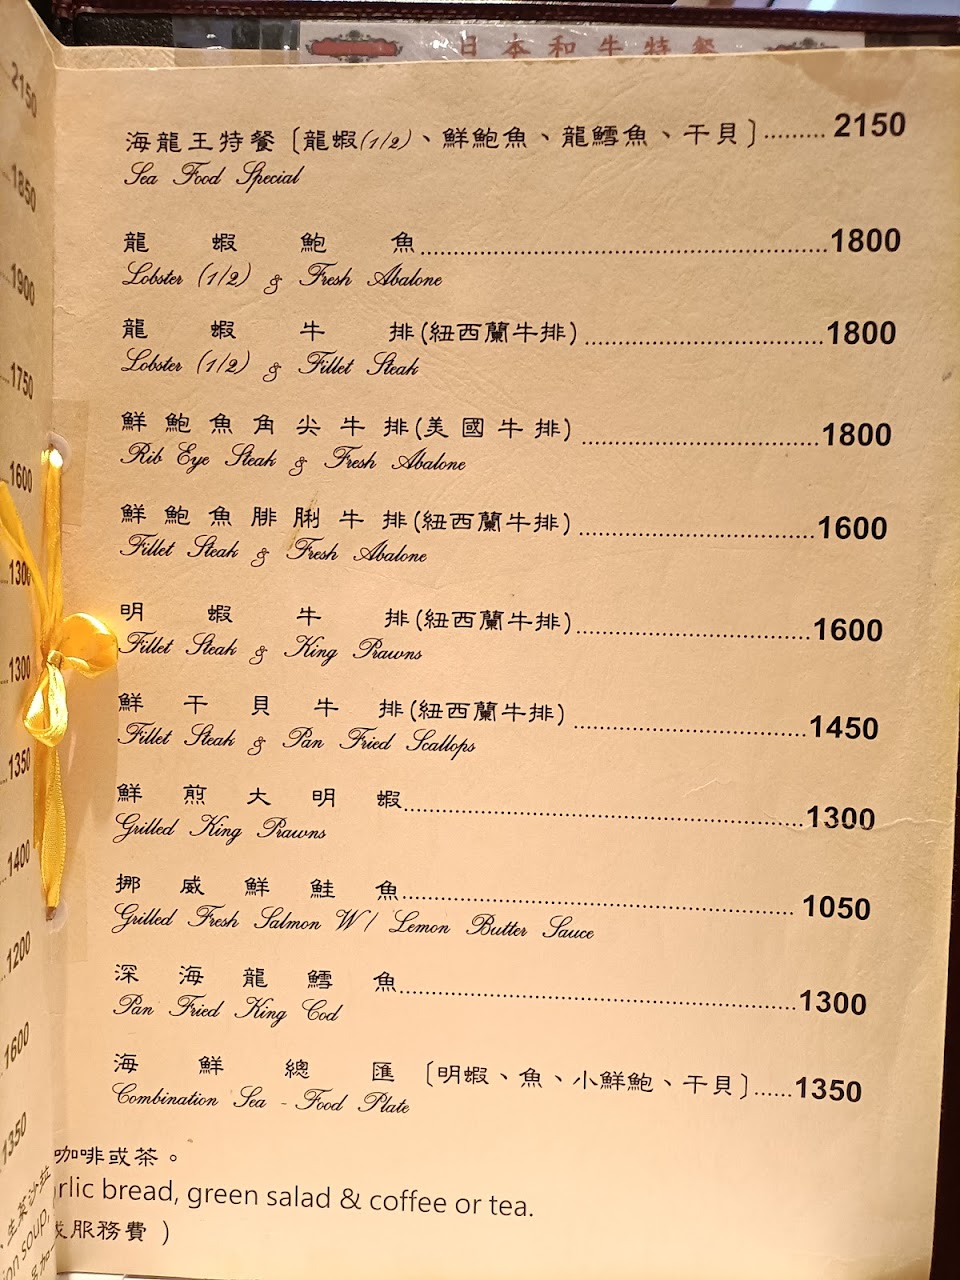 日本和牛特餐
海龍王特餐〔龍蝦(1/2)、鮮鮑魚、龍鱈魚、干貝〕......... 2150
Sea Food Special
龍蝦鮑魚......... 1800
Lobster (1/2) & Fresh Abalone
龍蝦牛排(紐西蘭牛排)......... 1800
Lobster (1/2) & Fillet Steak
鮮鮑魚角尖牛排(美國牛排)......... 1800
Rib Eye Steak & Fresh Abalone
鮮鮑魚腓脷牛排(紐西蘭牛排)......... 1600
Fillet Steak & Fresh Abalone
明蝦牛排(紐西蘭牛排)......... 1600
Fillet Steak & King Prawns
鮮干貝牛排(紐西蘭牛排)......... 1450
Fillet Steak & Pan Fried Scallops
鮮煎大明蝦......... 1300
Grilled King Prawns
挪威鮮鮭魚......... 1050
Grilled Fresh Salmon W/ Lemon Butter Sauce
深海龍鱈魚......... 1300
Pan Fried King Cod
海鮮總匯〔明蝦、魚、小鮮鮑、干貝〕...... 1350
Combination Sea - Food Plate
咖啡或茶。
rlic bread, green salad & coffee or tea.
服務費 )
2150
1850
1900
1750
1600
1300
1300
1350
1400
1200
1600
1350
生菜沙拉
ion soup,